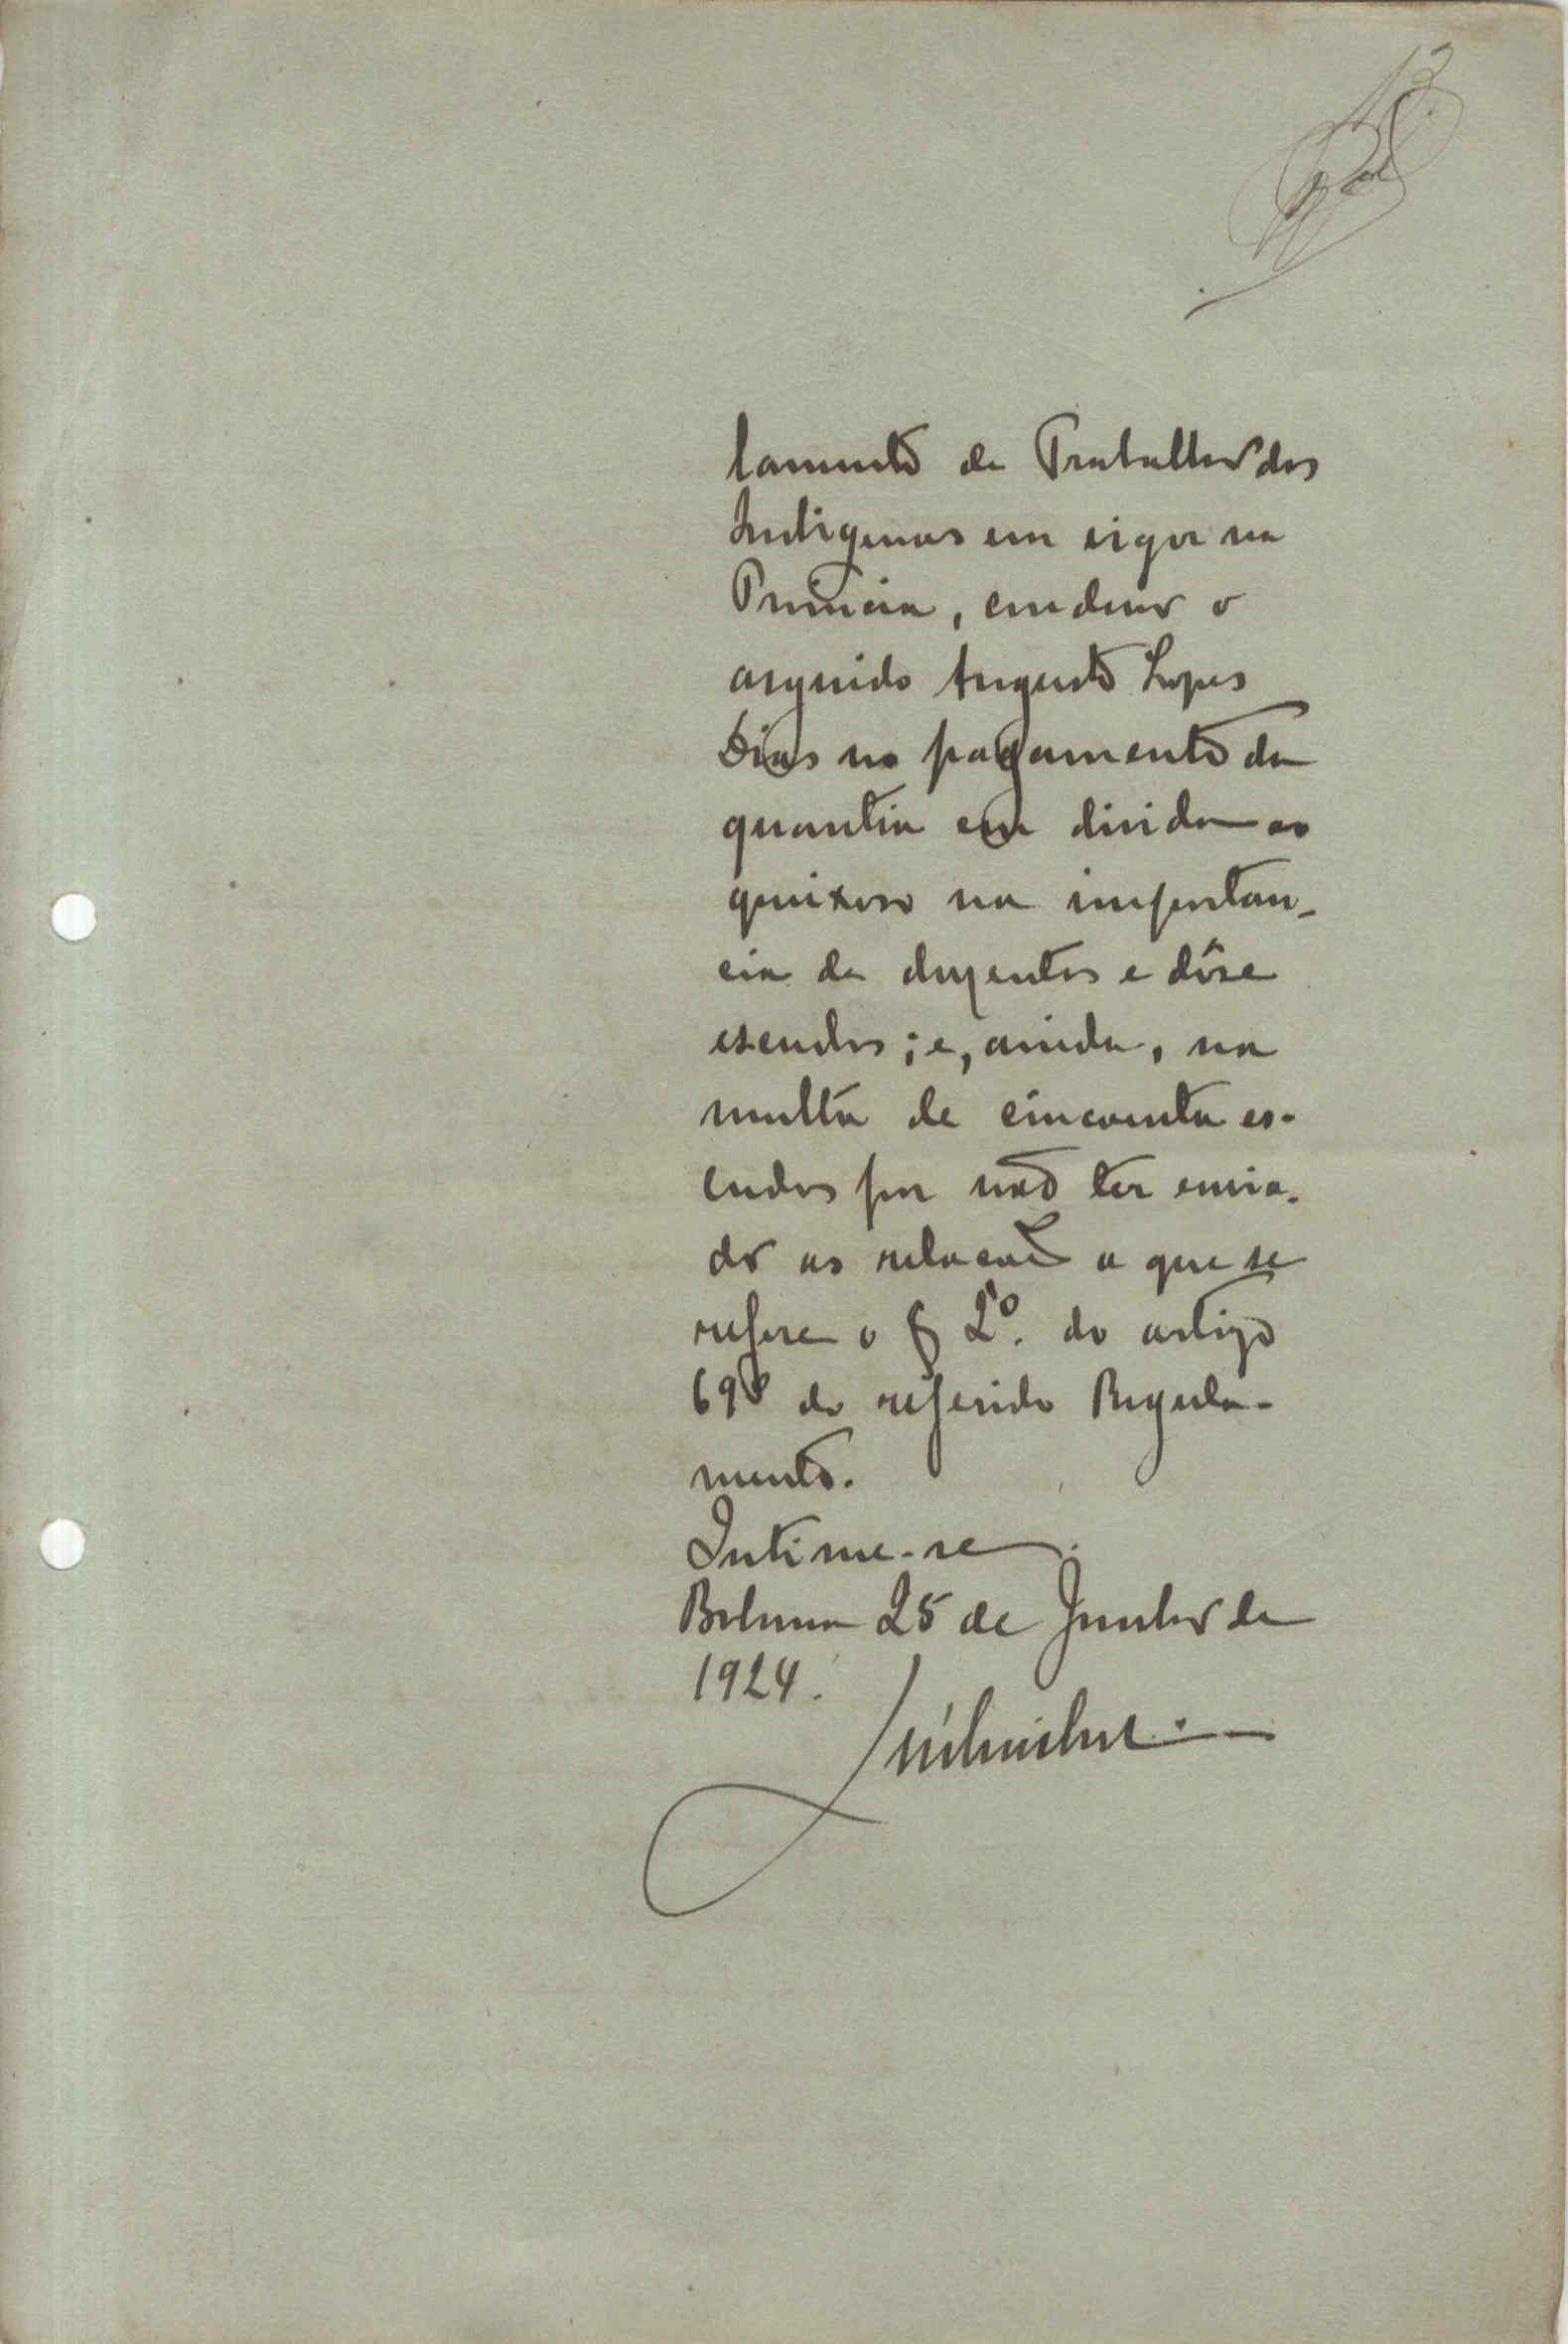 13
lamento de Trabalho dos
Indigenas em vigor na
Provincia, condeno o
arguido Augusto Lopes
Dias no pagamento da
quantia em divida ao
queixoso na importan-
cia de duzentos e dôse
escudos; e, ainda, na
multa de cincoenta es-
cudos por não ter envia-
do as relacões a que se
refere o § 2º. do artigo
69º do referido Regula-
mento.
Intime-se.
25 de Junho de
1924.